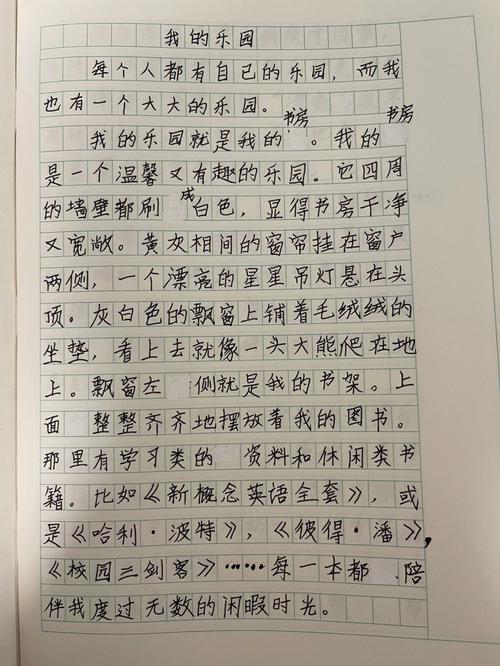 我的乐园
每个人都有自己的乐园,而我
也有一个大大的乐园。
我的乐园就是我的书房。我的书房
是一个温馨又有趣的乐园。它四周
的墙壁都刷成白色,显得书房干净
又宽敞。黄灰相间的窗帘挂在窗户
两侧,一个漂亮的星星吊灯悬在头
顶。灰白色的飘窗上铺着毛绒绒的
坐垫,看上去就像一头大熊爬在地
上。飘窗左侧就是我的书架。上
面整整齐齐地摆放着我的图书。
那里有学习类的资料和休闲类书
籍。比如《新概念英语全套》,或
是《哈利·波特》,《彼得·潘》,
《校园三剑客》……每一本都陪
伴我度过无数的闲暇时光。